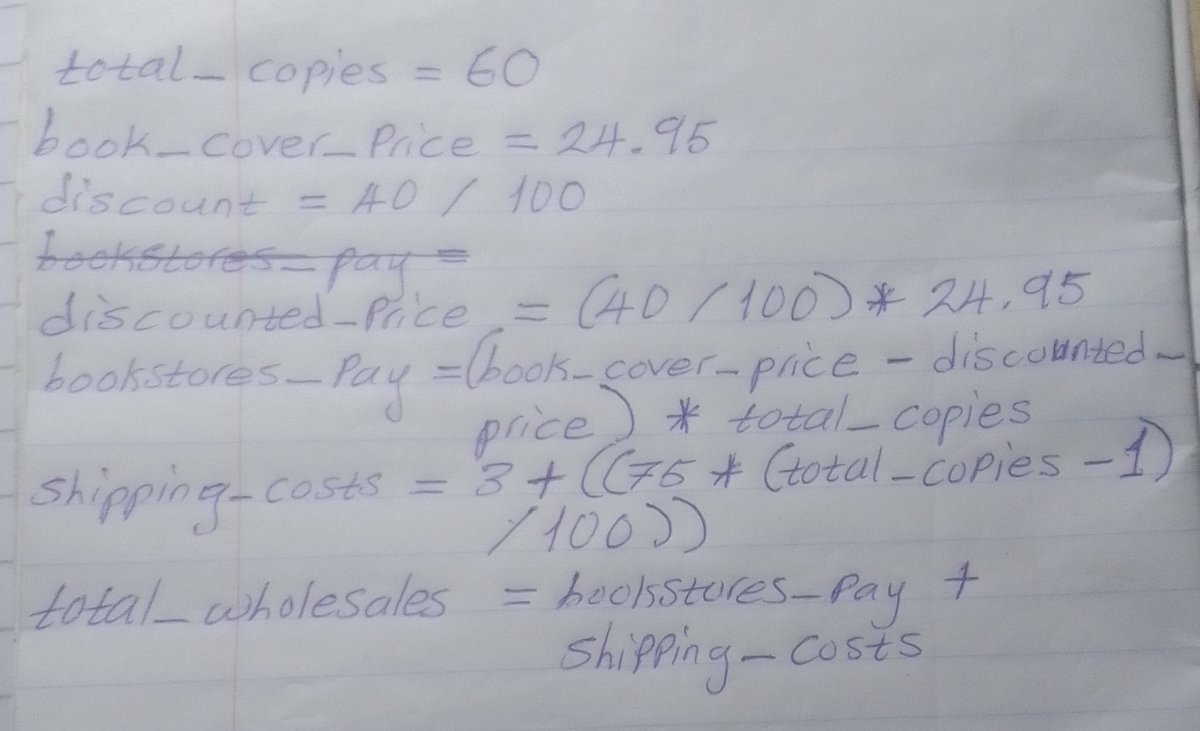 total_copies = 60
book_cover_Price = 24.95
discount = 40 / 100
bookstores_pay =
discounted_Price = (40 / 100) * 24.95
bookstores_Pay = (book_cover_price - discounted_
price) * total_copies
shipping_costs = 3 + ((75 * (total_copies - 1)
/ 100))
total_wholesales = bookstores_Pay +
shipping_costs